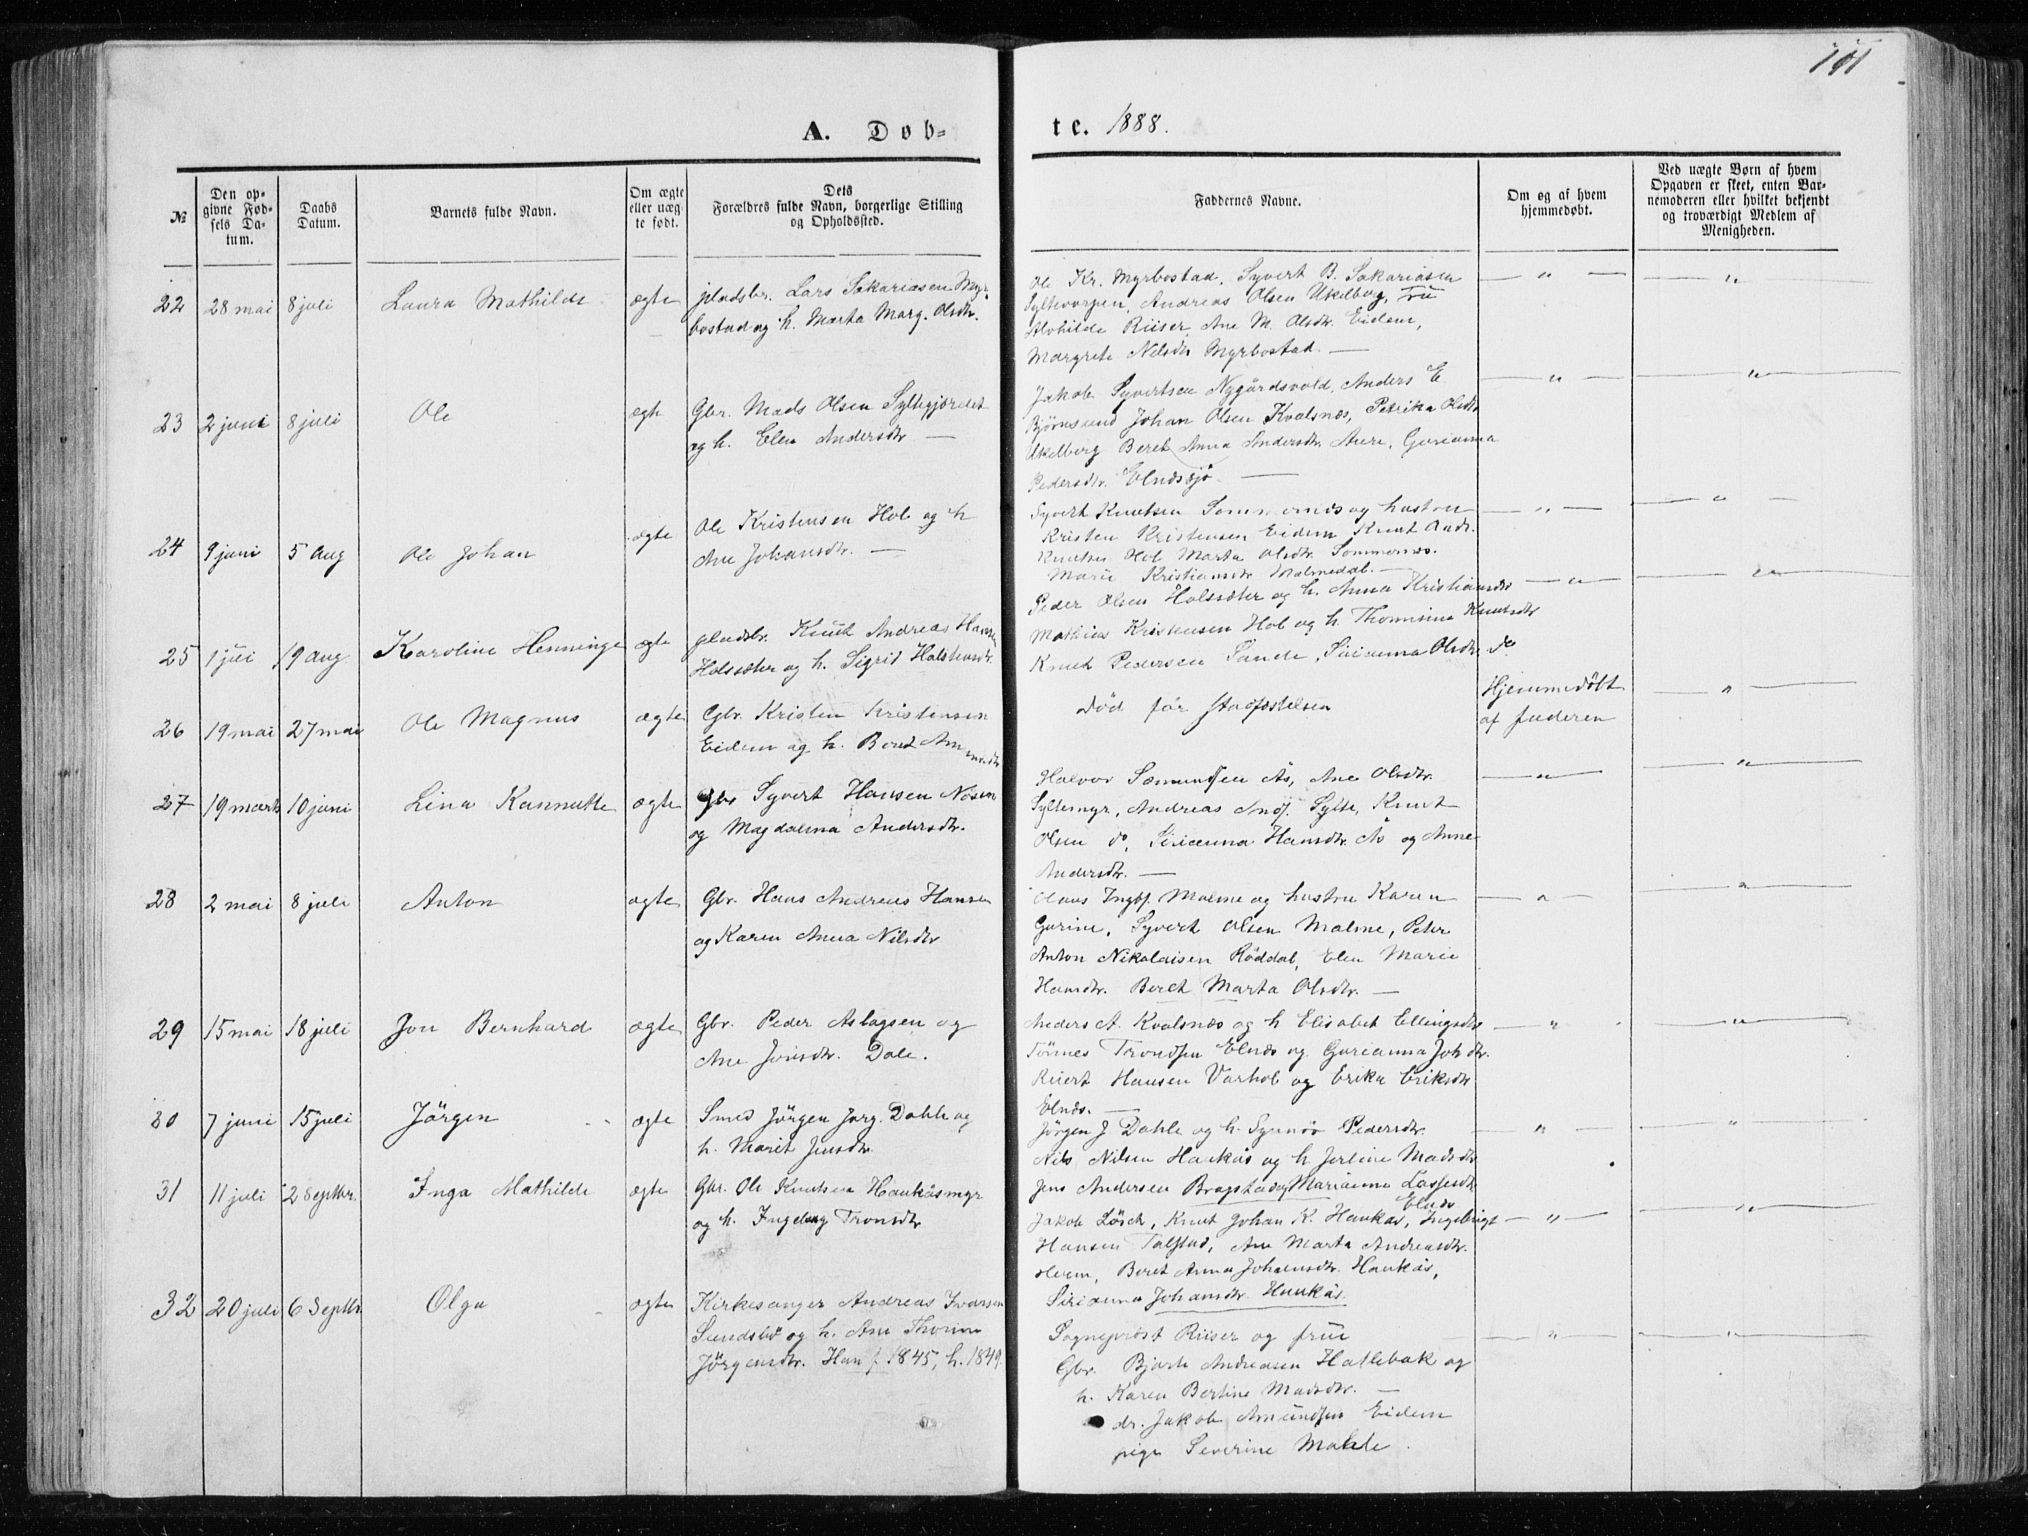 101
A. Døb-
te. 1888.
№
Den op-
givne Fød-
sels Da-
tum.
Daabs
Datum.
Barnets fulde Navn.
Om ægte
eller uæg-
te født.
Dets
Forældres fulde Navn, borgerlige Stilling
og Opholdssted.
Faddernes Navne.
Om og af hvem
hjemmedøbt.
Ved uægte Børn af hvem
Opgaven er skeet, enten Bar-
nemoderen eller hvilket bekjendt
og troværdigt Medlem af
Menigheden.
22 28 mai 8 juli Laura Mathilde ægte pladsbr. Lars Sakariasen Myr-
bostad og h. Marta Marg. Olsdtr.
Ole Kr. Myrbostad, Syvert B. Sakariasen
Andreas Olsen Ukelberg, Fru
Alvhilde Riiser, Ane M. Olsdtr. Eidem,
Margrete Nilsdtr Myrbostad. —
— „ — — „ —
23 2 juni 8 juli Ole ægte Gbr. Mads Olsen Syltegjerdet
og h. Elen Andersdtr. —
Jakob Syvertsen Nygårdsvold, Anders E.
Bjørnsund Johan Olsen Kvalsnes, Petrika Olsdtr
Ukelberg Beret Anna Andersdtr. Aure, Gurianna
Pedersdtr. Elnessjø. —
— „ — — „ —
24 9 juni 5 aug Ole Johan ægte Ole Kristensen Hol og h
Ane Johansdtr. —
Syvert Knutsen Sommernes og hustru
Kristen Kristensen Eidem Knut Andr.
Knutsen Hol Marta Olsdtr. Sommernes.
Marie Kristiansdtr Malmedal. —
— „ — — „ —
25 1 juli 19 aug Karoline Henninge ægte pladsbr. Knut Andreas Hansen
Holsæter og h. Sigrid Holstensdtr.
Peder Olsen Holsæter og h. Anna Kristiansdtr
Mathias Kristensen Hol og h. Thomine Knutsdtr
Knut Pedersen Sande, Sirianna Olsdtr. do
— „ — — „ —
26 19 mai 27 mai Ole Magnus ægte Gbr. Kristen Kristensen
Eidem og h. Beret Amundsdtr
Død før stadfæstelsen
Hjemmedøbt
af faderen
— „ —
27 19 marts 10 juni Lina Kannutte ægte Gbr Syvert Hansen Nøsen
og Magdalena Andersdtr.
Halvor Sæmundsen Ås, Ane Olsdtr.
Syltemyr, Andreas Sylte, Knut
Olsen do, Sirianna Hansdtr. Ås og Anne
Andersdtr. —
— „ — — „ —
28 2 mai 8 juli Anton ægte Gbr. Hans Andreas Hansen
og Karen Anna Nilsdtr
Olaus Malme og hustru Karen
Gurine, Syvert Olsen Malme, Peter
Anton Nikolaisen Røddal, Elen Marie
Hansdtr. Beret Marta Olsdtr. —
— „ — — „ —
29 15 mai 18 juli Jon Bernhard ægte Gbr. Peder Aslagsen og
Ane Jonsdtr. Dale.
Anders A. Kvalsnes og h Elisabet Ellingsdtr
Tønnes Trondsen Elnes og Gurianna Joh dtr.
Riiert Hansen Varhol og Erika Eriksdtr
Elnes. —
— „ — — „ —
30 7 juni 15 juli Jørgen ægte Smed Jørgen Jørg. Dahle og
h. Marit Jensdtr.
Jørgen J Dahle og h. Synnøv Pedersdtr.
Nils Nilsen Haukås og h. Jerline Madsdtr
Jens Andersen Bragstad og Marianne Lassesdtr
Elnes
— „ — — „ —
31 11 juli 2 Septbr. Inga Mathilde ægte Gbr. Ole Knutsen Haukåsmyr
og h. Ingeborg Tronsdtr
Jakob Lösch, Knut Johan K. Haukås, Ingebrigt
Hansen Talstad, Ane Marta Andreasdtr.
Herem, Beret Anna Johansdtr. Haukås,
Sirianna Johansdtr. Haukås.
— „ — — „ —
32 20 juli 6 Septbr. Olga ægte Kirkesanger Andreas Ivarsen
Sundsbø og h. Ane Thorine
Jørgensdtr. Han f. 1845, h. 1849.
Sogneprest Riiser og frue
Gbr. Bjarte Andreasen Hatlebak og
h. Karen Bertine Madsdtr. —
dr. Jakob Amundsen Eidem
pige Severine Mahle.
— „ — — „ —